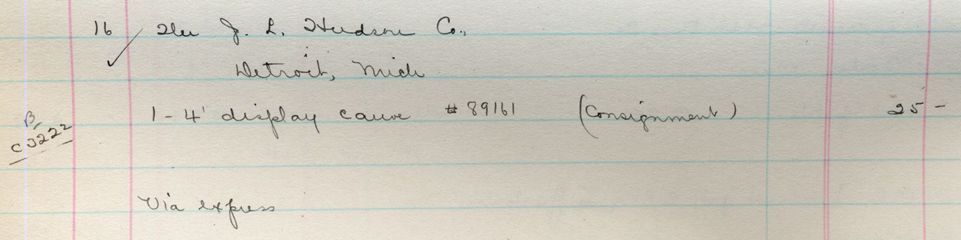 16 The J. L. Hudson Co.,
Detroit, Mich
1 - 4' display canoe #89161 (Consignment) 25 -
B/
C3222
Via express